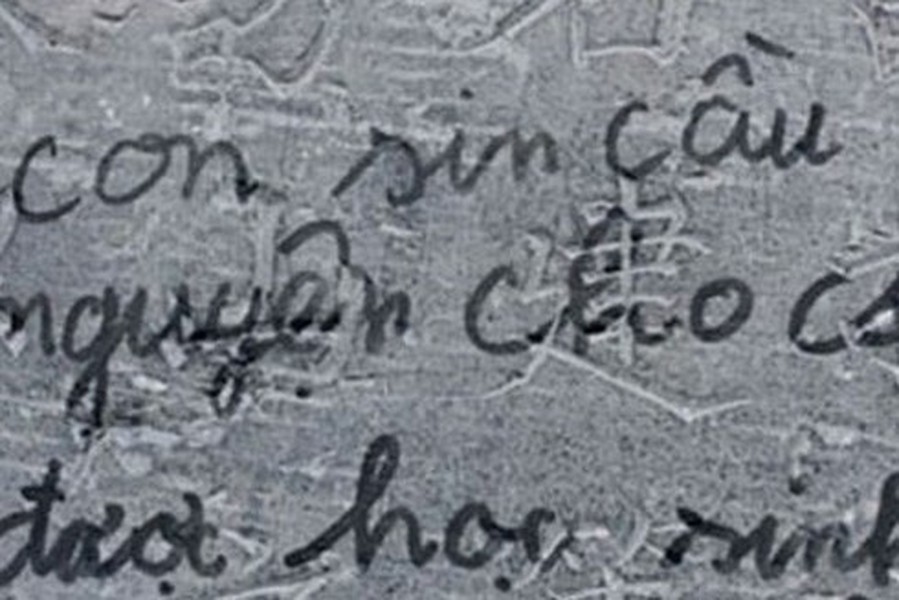 con sin cầu
nguyện cho
được học sinh